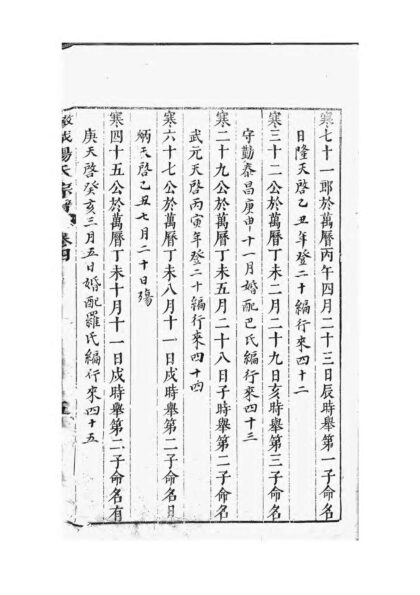 寒七十一郎於萬曆丙午四月二十三日辰時舉第一子命名
日隆天啓乙丑年登二十編行來四十二
寒三十二公於萬曆丁未二月二十九日亥時舉第三子命名
守勤泰昌庚申十一月婚配巴氏編行來四十三
寒二十九公於萬曆丁未五月二十八日子時舉第二子命名
武元天啓丙寅年登二十編行來四十四
寒六十七公於萬曆丁未八月十一日戌時舉第二子命名日
炳天啓乙丑七月二十日殤
寒四十五公於萬曆丁未十月十一日戌時舉第二子命名有
庚天啓癸亥三月五日婚配羅氏編行來四十五
楊氏宗譜
卷四